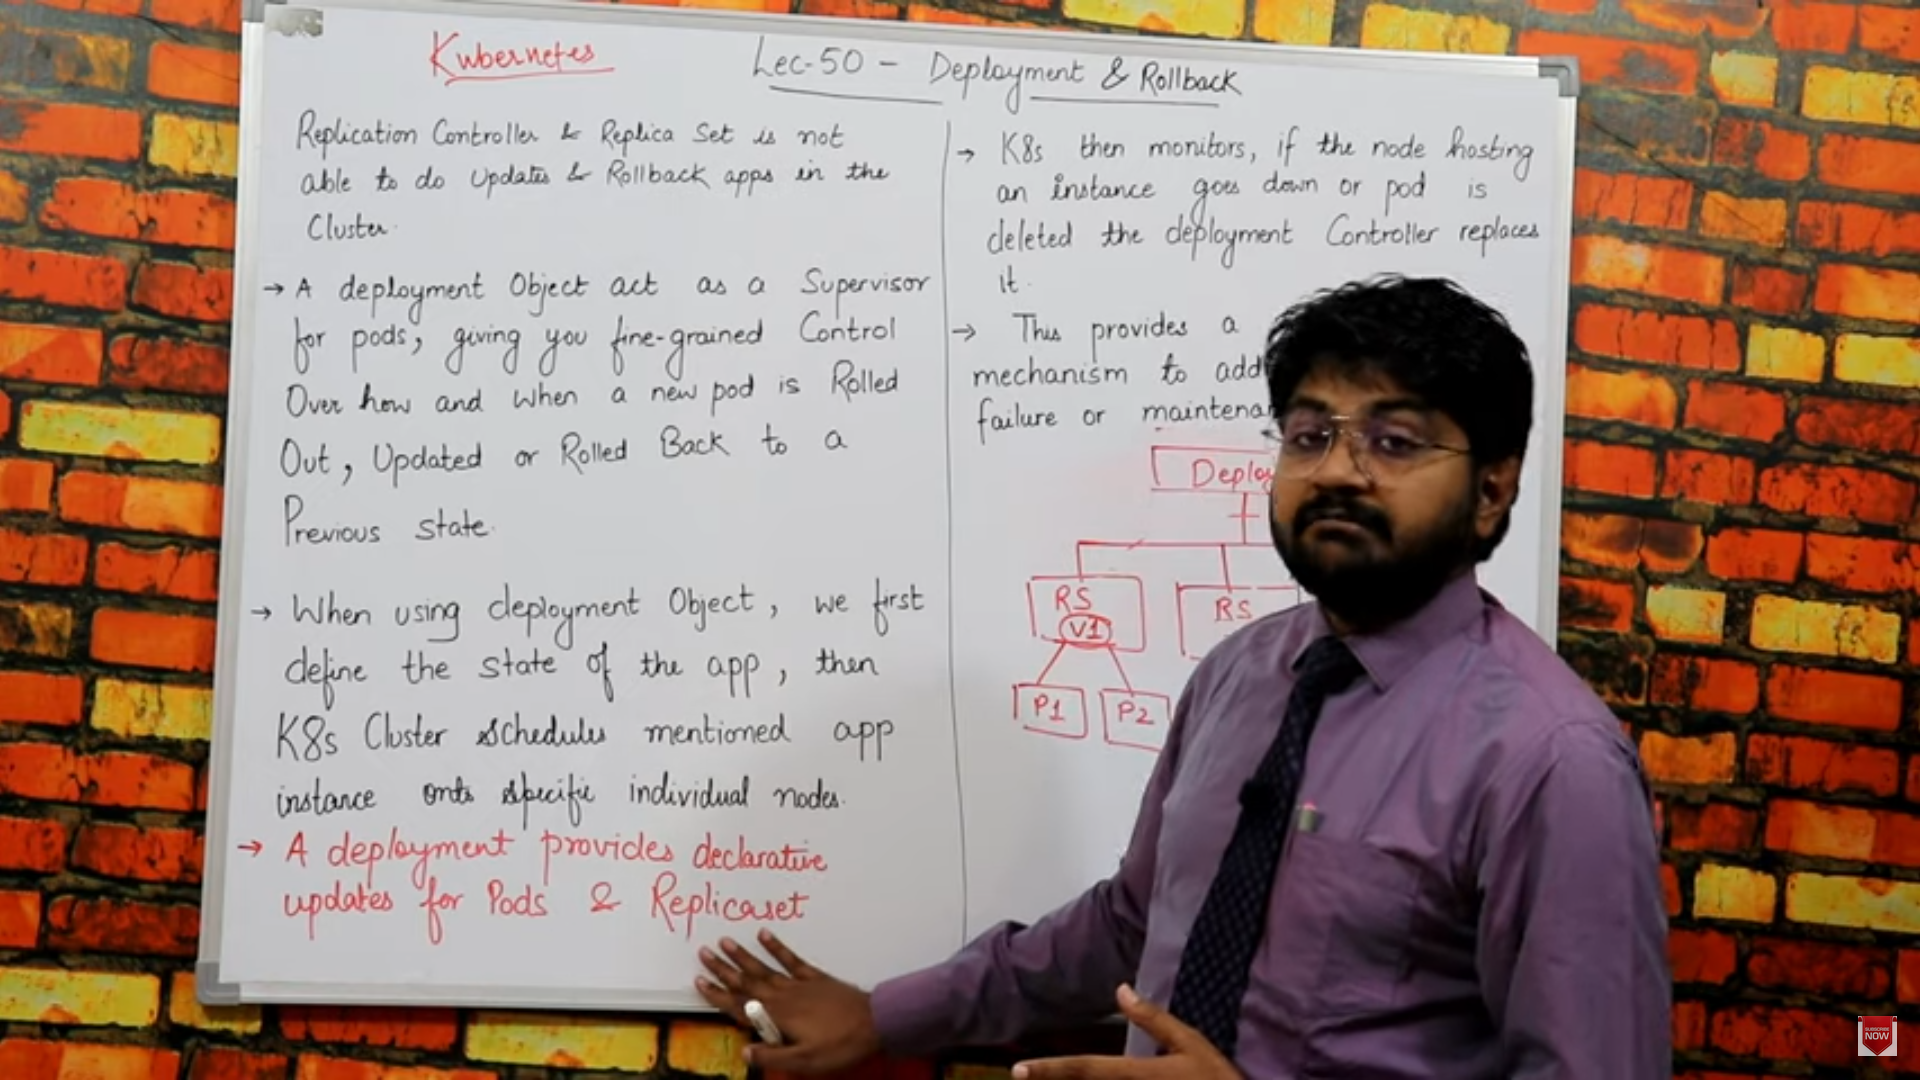 Kubernetes
Lec-50 - Deployment & Rollback
Replication Controller & Replica Set is not
able to do Updates & Rollback apps in the
Cluster.
→ A deployment Object act as a Supervisor
for pods, giving you fine-grained Control
Over how and when a new pod is Rolled
Out, Updated or Rolled Back to a
Previous state.
→ When using deployment Object, we first
define the state of the app, then
K8s Cluster schedules mentioned app
instance onto specific individual nodes.
→ A deployment provides declarative
updates for Pods & Replicaset
→ K8s then monitors, if the node hosting
an instance goes down or pod is
deleted the deployment Controller replaces
it.
→ This provides a
mechanism to add
failure or maintenan
Deploy
RS
V1
RS
P1
P2
SUBSCRIBE
NOW